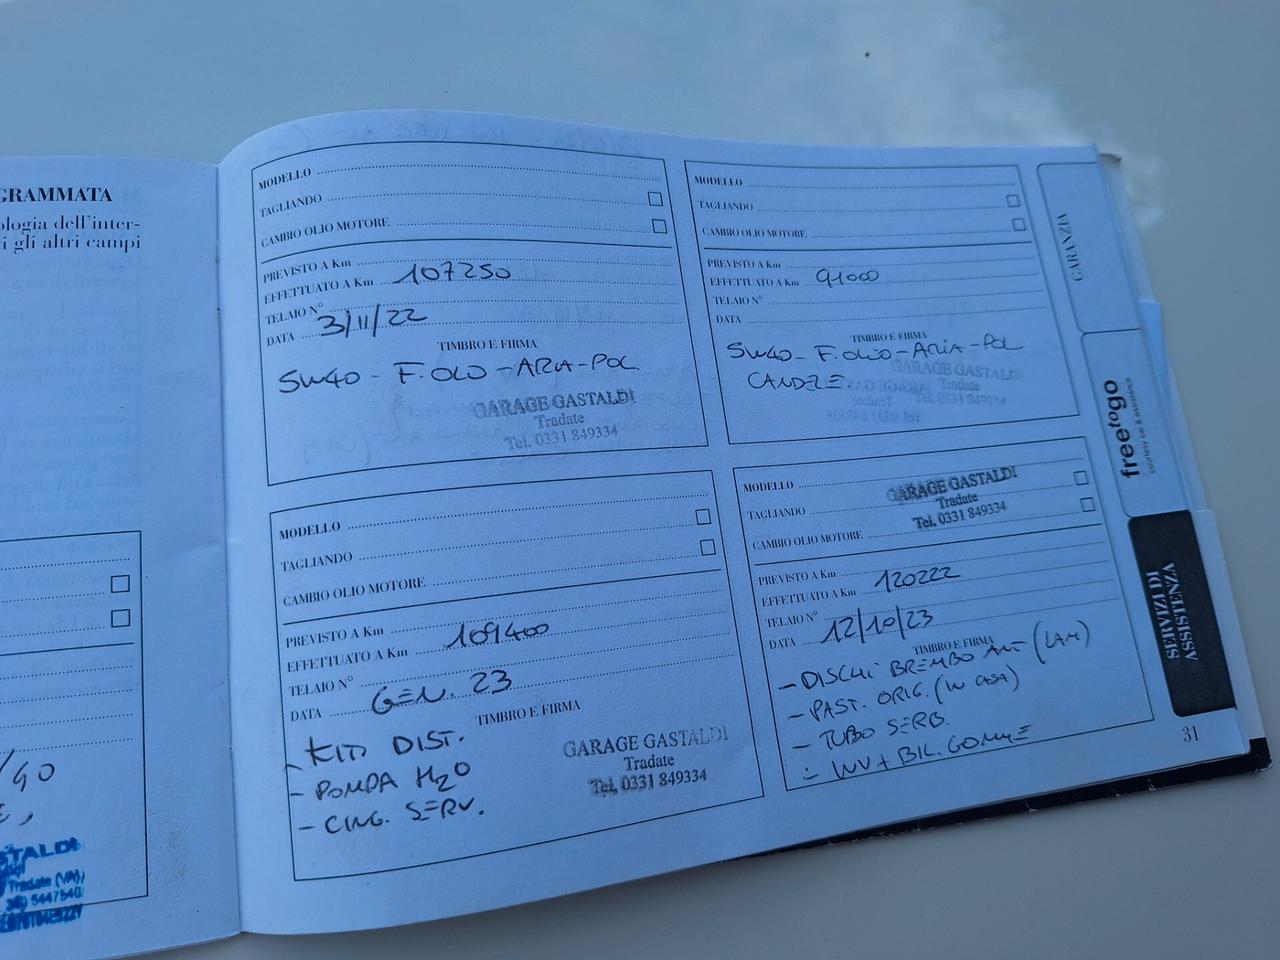 GRAMMATA
ologia dell'inter-
i gli altri campi
/40
STALDI
Tradate (VA)
5447540
MODELLO
TAGLIANDO
CAMBIO OLIO MOTORE
PREVISTO A Km
EFFETTUATO A Km 107250
TELAIO N°
DATA 3/11/22
TIMBRO E FIRMA
5W40 - F. OLIO - ARIA - POL
GARAGE GASTALDI
Tradate
Tel. 0331 849334
MODELLO
TAGLIANDO
CAMBIO OLIO MOTORE
PREVISTO A Km
EFFETTUATO A Km 91000
TELAIO N°
DATA
TIMBRO E FIRMA
5W40 - F. OLIO - ARIA - POL
CANDELE.
GARAGE GASTALDI
Tradate
Tel. 0331 849334
MODELLO
TAGLIANDO
CAMBIO OLIO MOTORE
PREVISTO A Km
EFFETTUATO A Km 109400
TELAIO N°
DATA GEN. 23
TIMBRO E FIRMA
- KIT DIST.
- POMPA H2O
- CING. SERV.
GARAGE GASTALDI
Tradate
Tel. 0331 849334
MODELLO
TAGLIANDO
GARAGE GASTALDI
Tradate
Tel. 0331 849334
CAMBIO OLIO MOTORE
PREVISTO A Km
EFFETTUATO A Km 120222
TELAIO N°
DATA 12/10/23
TIMBRO E FIRMA
- DISCHI BREMBO ANT (LAM)
- PAST. ORIG. (IN CASA)
- TUBO SERB.
- INV + BIL. GOMME
31
GARANZIA
free to go
courtesy car & assistance
SERVIZI DI
ASSISTENZA